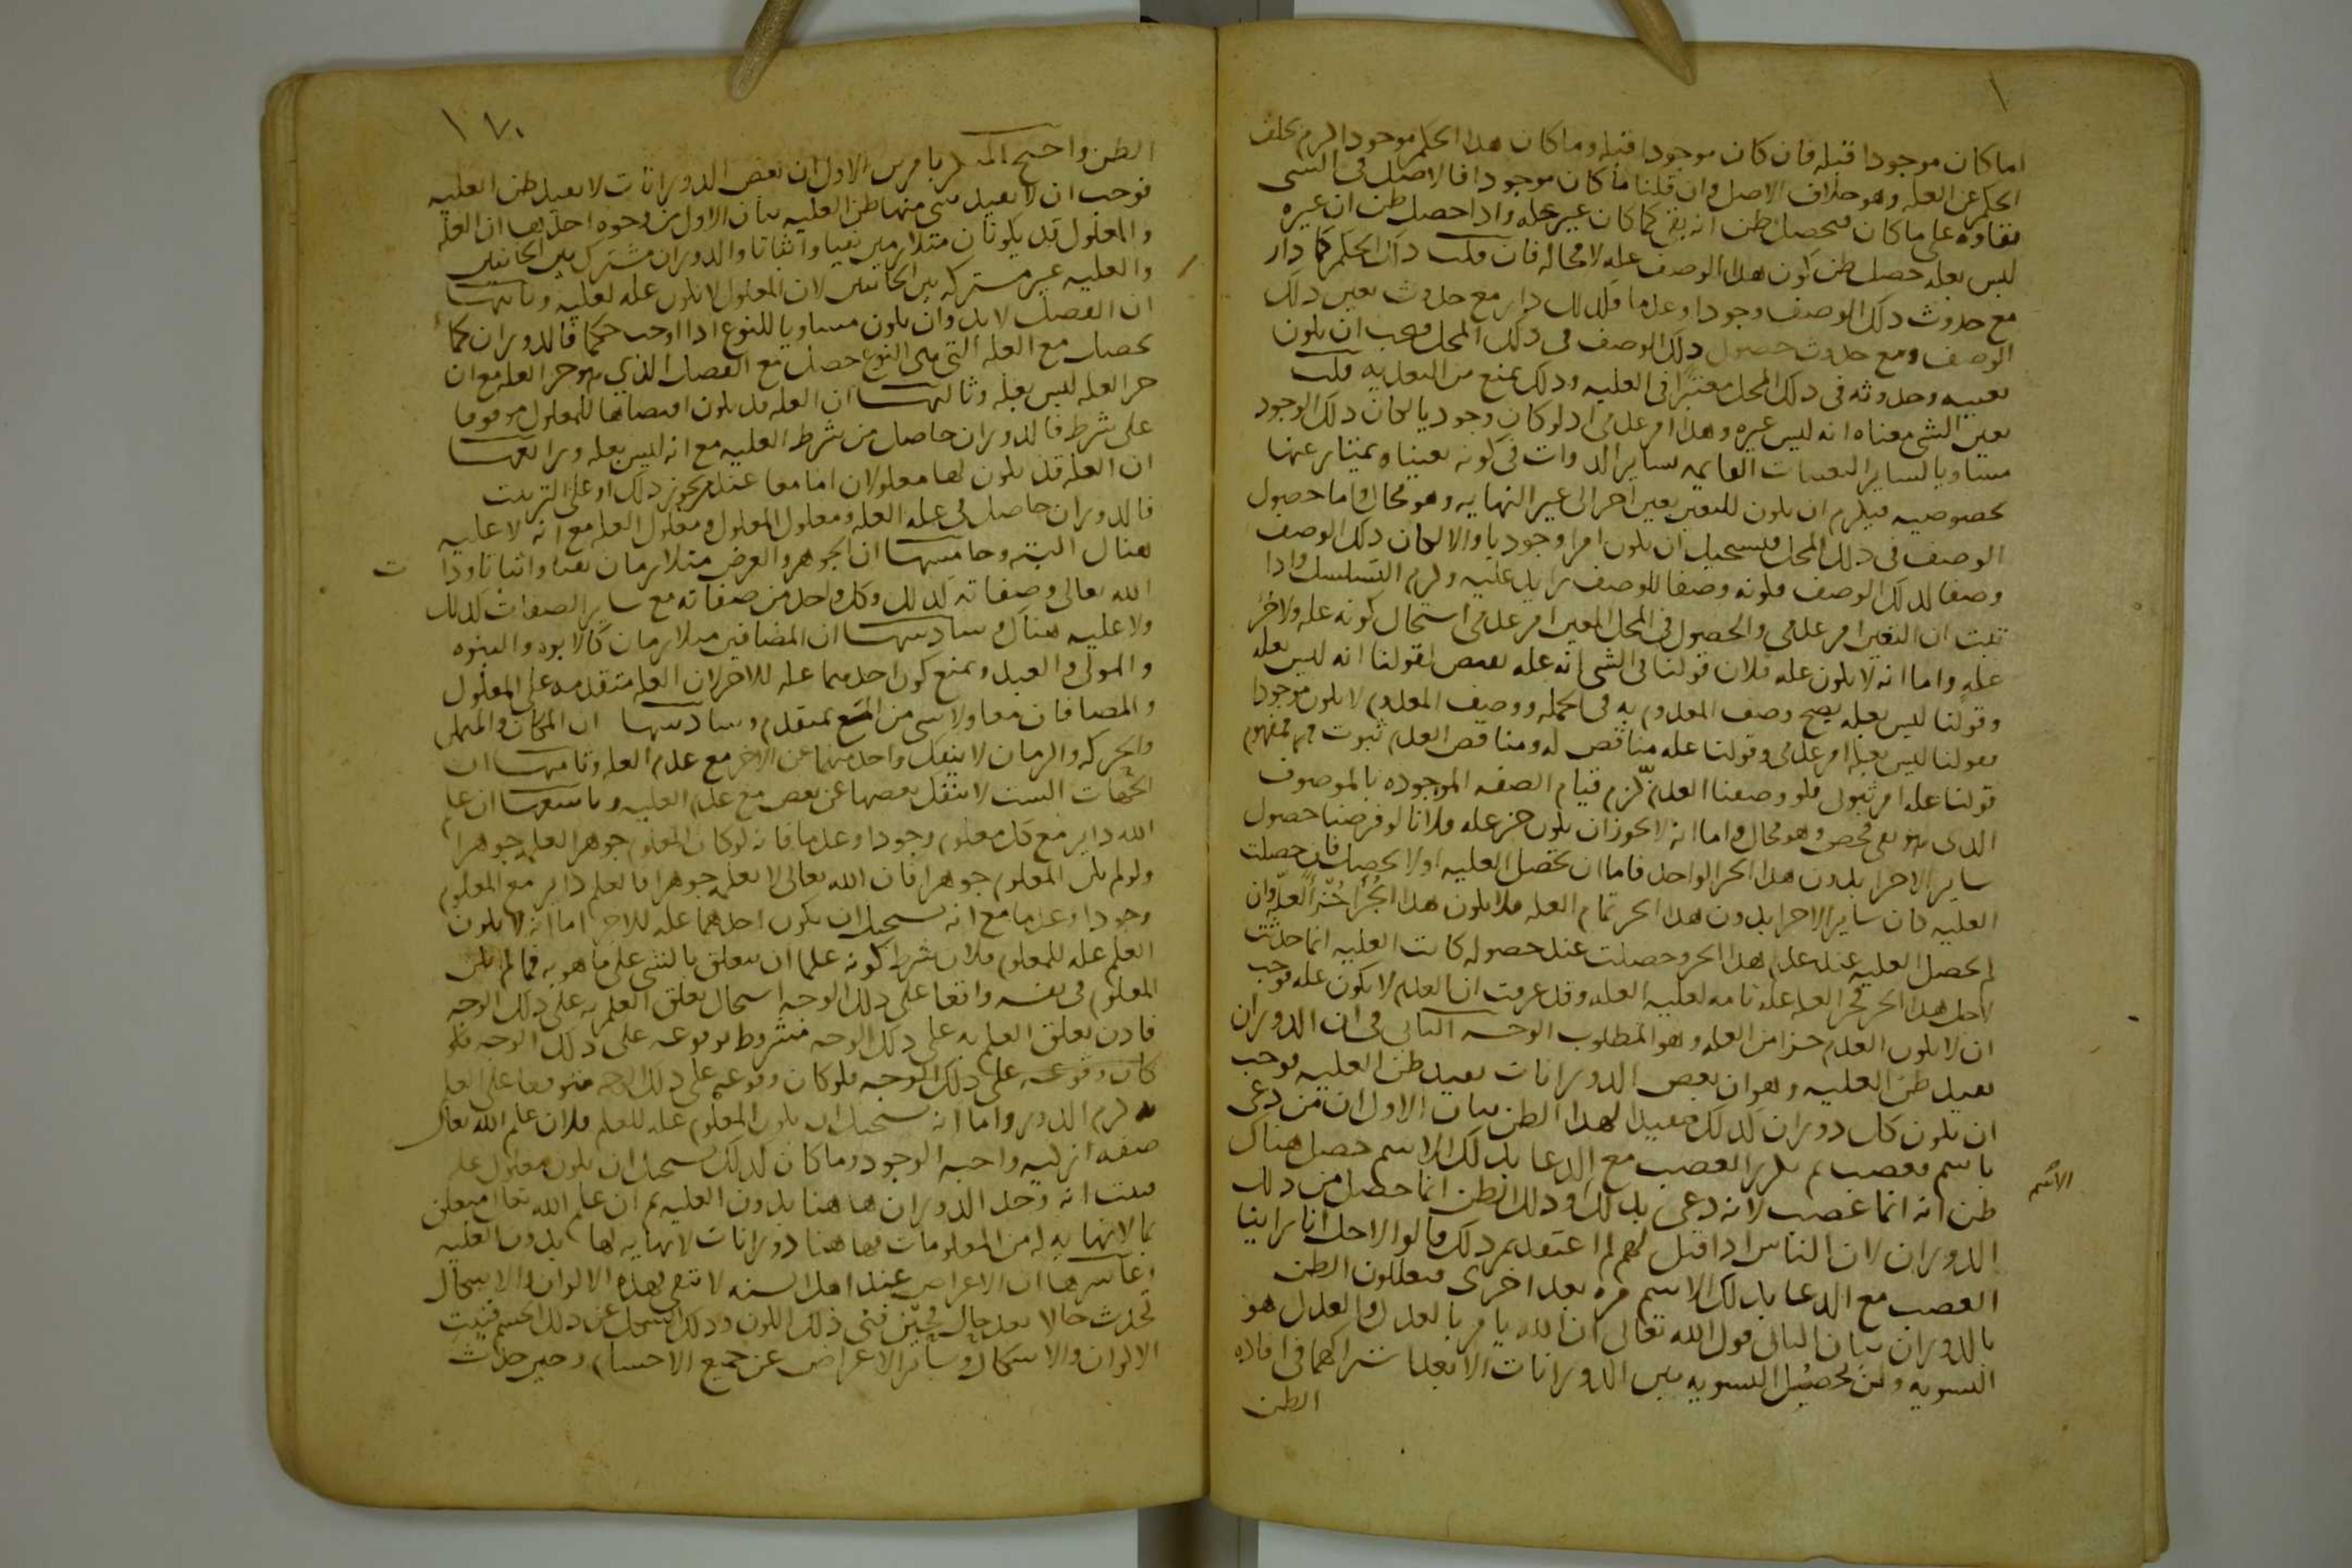 اما كان موجودا قبله فان كان موجودا قبله وما كان هذا الحكم موجودا لزم تخلف
الحكم عن العله وهو خلاف الاصل وان قلنا ما كان موجودا فالاصل فى الشى
بقاوه على ما كان فيحصل ظن انه بقى كما كان غير عله واذا حصل ظن ان غيره
ليس بعله حصل ظن كون هذا الوصف عله لا محاله فان قلت ذلك الحكم كما دار
مع حدوث ذلك الوصف وجودا وعدما فكذلك دار مع حدوث تعين ذلك
الوصف ومع حدوث حصول ذلك الوصف فى ذلك المحل فيجب ان يكون
تعينه وحدوثه فى ذلك المحل معتبرا فى العليه وذلك يمنع من التعديه قلت
تعين الشى معناه انه ليس غيره وهذا امر عدمى اذ لو كان وجوديا لكان ذلك الوجود
مساويا لساير التعينات القايمه بساير الذوات فى كونه تعينا ويمتاز عنها
بخصوصيه فيلزم ان يكون للتعين تعين اخر الى غير النهايه وهو محال واما حصول
الوصف فى ذلك المحل فيستحيل ان يكون امرا وجوديا والا لكان ذلك الوصف
وصفا لذلك الوصف فكونه وصفا للوصف زايد عليه ولزم التسلسل واذا
ثبت ان التعين امر عدمى والحصول فى المحل المعين امر عدمى استحال كونه عله ولا جز
عله واما انه لا يكون عله فلان قولنا فى الشى انه عله نقيض لقولنا انه ليس بعله
وقولنا ليس بعله يصح وصف المعدوم به فى الجمله ووصف المعدوم لا يكون موجودا
فقولنا ليس بعله امر عدمى وقولنا عله مناقض له ومناقض العدم ثبوت فمفهوم
قولنا عله امر ثبوتى فلو وصفنا العدم به لزم قيام الصفه الموجوده بالموصوف
الذى هو نفى محض وهو محال واما انه لا يجوز ان يكون جز عله فلانا لو فرضنا حصول
ساير الاجزا بدون هذا الجز الواحد فاما ان تحصل العليه او لا يحصل فان حصلت
العليه كان ساير الاجزا بدون هذا الجز تمام العله فلا يكون هذا الجزا جزا لعله وان
لم يحصل العليه عند عدم هذا الجز وحصلت عند حصوله كانت العليه انما حدثت
لاجل هذا الجز فجز العله عله تامه لعليه العله وقد عرفت ان العدم لا يكون عله فوجب
ان لا يكون العدم جزا من العله وهو المطلوب الوجه الثانى فى ان الدوران
يفيد ظن العليه وهو ان بعض الدورانات يفيد ظن العليه فوجب
ان يكون كل دوران كذلك مفيدا لهذا الظن بيان الاول ان من دعى
باسم فغضب ثم تكرر الغضب مع الدعا بذلك الاسم حصل هناك
ظن انه انما غضب لانه دعى بذلك وذلك الظن انما حصل من ذلك
الاسم
الدوران لان الناس اذا قيل لهم لم اعتقدتم ذلك قالوا لاجل انا راينا
الغضب مع الدعا بذلك الاسم مره بعد اخرى فيعللون الظن
بالدوران بيان الثانى قول الله تعالى ان الله يامر بالعدل والعدل هو
التسويه ولن تحصل التسويه بين الدورانات الا بعد اشتراكهما فى افاده
الظن
١٧٠
الظن واحتج المنكر بامرين الاول ان بعض الدورانات لا يفيد ظن العليه
فوجب ان لا يفيد شى منها ظن العليه بيان الاول من وجوه احدها ان العله
والمعلول قد يكونان متلازمين نفيا واثباتا والدوران مشترك بين الجانبين
والعليه غير مشتركه بين الجانبين لان المعلول لا يكون عله لعليه وثانيها
ان الفصل لا بد وان يكون مساويا للنوع اذا اوجب حكما فالدوران كما
يحصل مع العله التى هى النوع حصل مع الفصل الذي هو جز العله مع ان
جز العله ليس بعله وثالثها ان العله قد يكون اقتضاها للمعلول موقوفا
على شرط فالدوران حاصل من شرط العليه مع انه ليس بعله ورابعها
ان العله قد يكون لها معلولان اما معا عند من يجوز ذلك او على الترتيب
فالدوران حاصل فى عله العله ومعلول المعلول ومعلول العله مع انه لا عليه
هناك البته وخامسها ان الجوهر والعرض متلازمان نفيا واثباتا وذا
ت
الله تعالى وصفاته كذلك وكل واحد من صفاته مع ساير الصفات كذلك
ولا عليه هناك وسادسها ان المضافين متلازمان كالابوه والبنوه
والمولى والعبد ويمتنع كون احدهما عله للاخر لان العله متقدمه على المعلول
والمضافان معا ولا شى من المع بمتقدم وسادسها ان المكان والمتمكن
والحركه والزمان لا ينفك واحد منهما عن الاخر مع عدم العله وثامنها ان
الجهات الست لا ينفك بعضها عن بعض مع عدم العليه وتاسعها ان علم
الله داير مع كل معلوم وجودا وعدما فانه لو كان المعلوم جوهرا لعلمه جوهرا
ولو لم يكن المعلوم جوهرا فان الله تعالى لا يعلمه جوهرا فالعلم داير مع المعلوم
وجودا وعدما مع انه يستحيل ان يكون احدهما عله للاخر اما انه لا يكون
العلم عله للمعلوم فلان شرط كونه علما ان يتعلق بالشى على ما هو به فما لم يكن
المعلوم فى نفسه واقعا على ذلك الوجه استحال تعلق العلم به على ذلك الوجه
فاذن تعلق العلم به على ذلك الوجه مشروط بوقوعه على ذلك الوجه فلو
كان وقوعه على ذلك الوجه فلو كان وقوعه على ذلك الوجه متوقفا على العلم
به لزم الدور واما انه يستحيل ان يكون المعلوم عله للعلم فلان علم الله تعالى
صفه ازليه واجبه الوجود وما كان كذلك يستحيل ان يكون معلول عله
فثبت انه وجد الدوران هاهنا بدون العليه ثم ان علم الله تعالى متعلق
بما لا نهايه له من المعلومات فهاهنا دورانات لا نهايه لها بدون العليه
وعاشرها ان الاعراض عند اهل السنه لا تبقى فهذه الالوان والاشكال
تحدث حالا بعد حال فحين فنى ذلك اللون وذلك الشكل عن ذلك الجسم فنيت
الالوان والاشكال وساير الاعراض عن جميع الاجسام وحين حدث